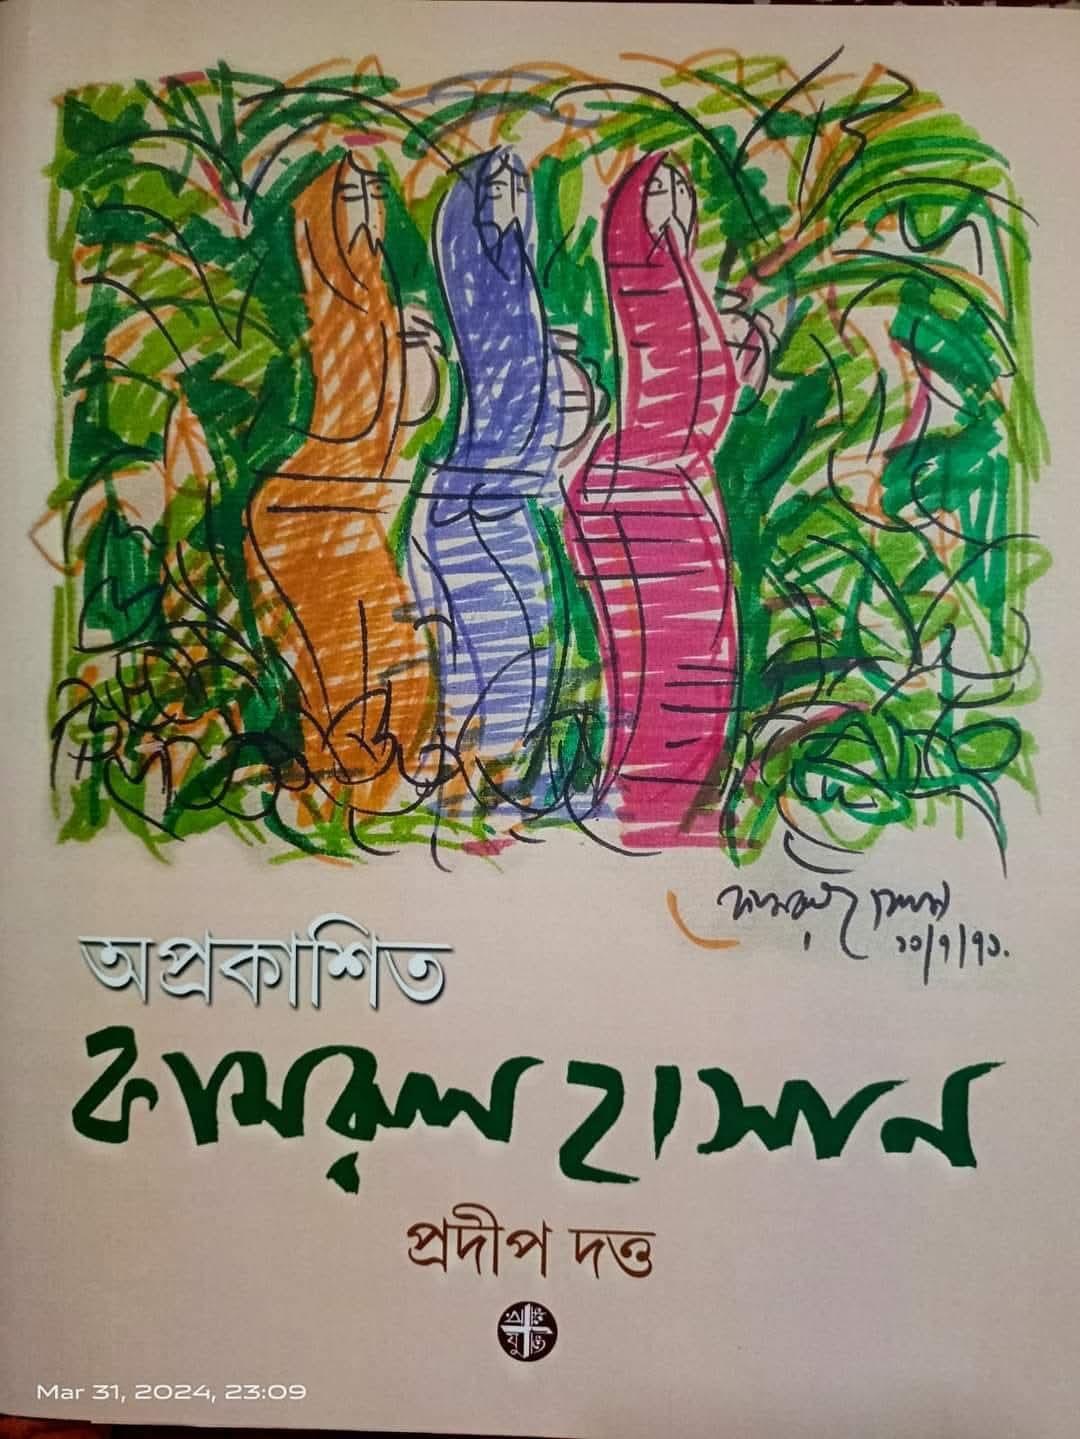 কামরুল হাসান
১০/৭/৭১.
অপ্রকাশিত
কামরুল হাসান
প্রদীপ দত্ত
Mar 31, 2024, 23:09